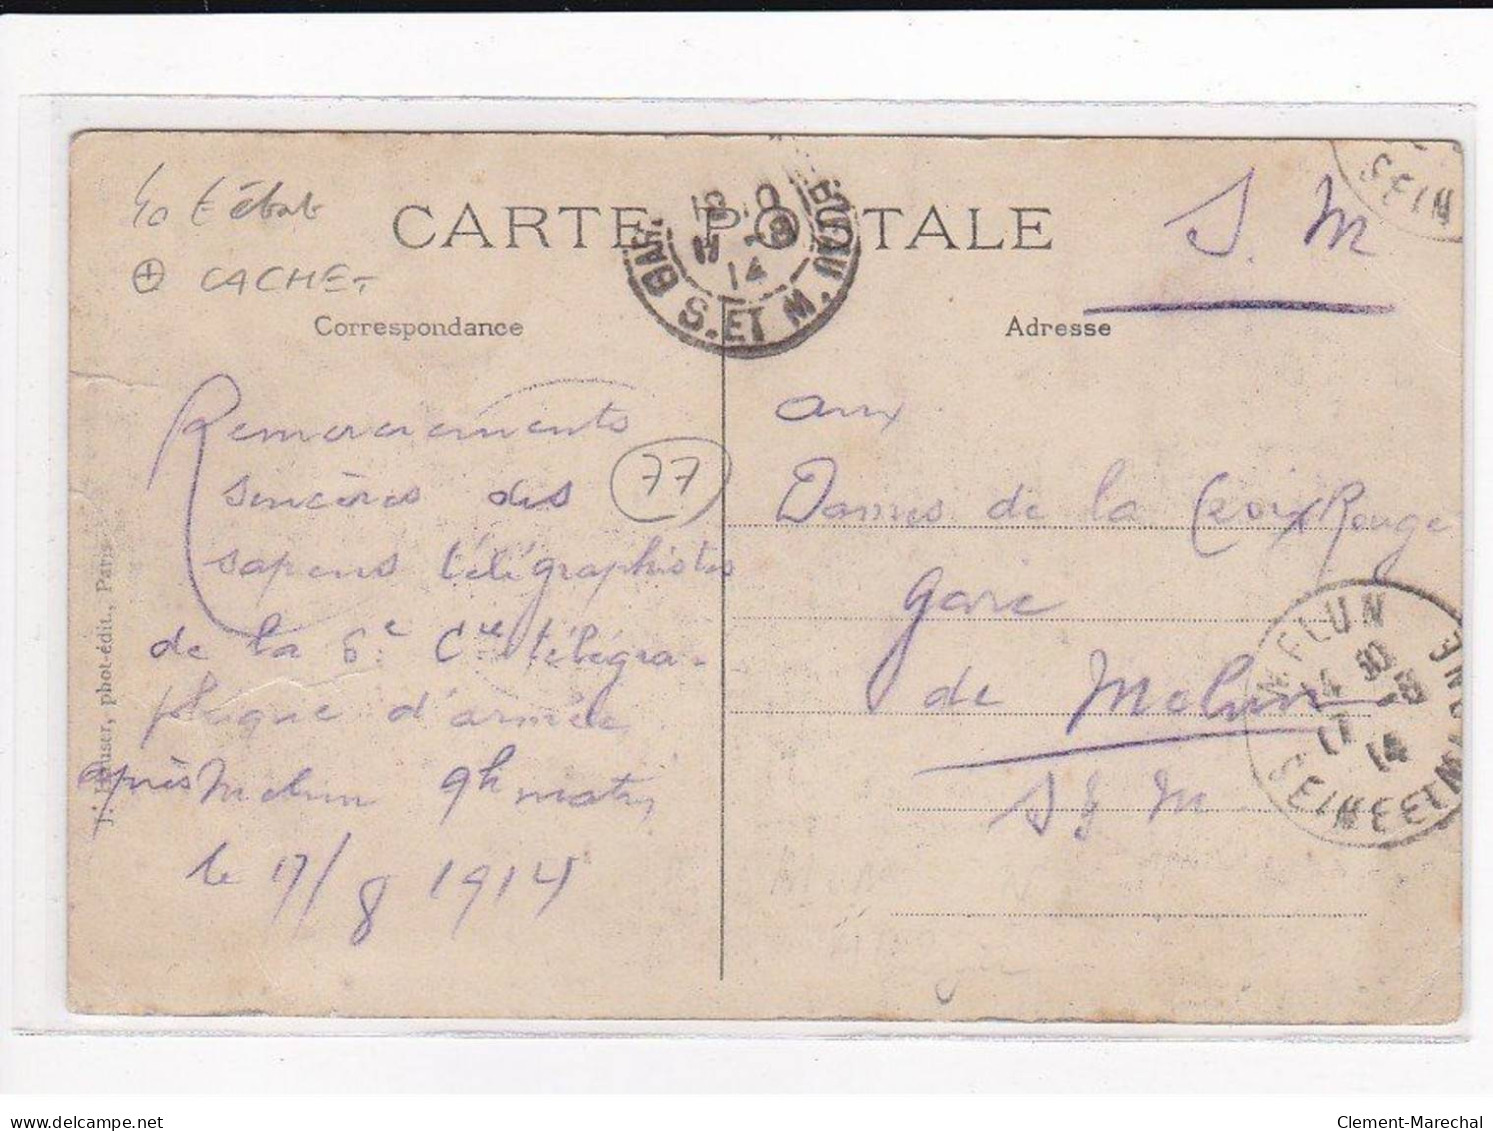 40 t état
CACHET
CARTE POSTALE
S. M
Correspondance
Adresse
BAR.
S. ET M.
14
SEIN
Remerciements
sincères des
77
sapeurs télégraphistes
de la 6e Cie télégra-
phique d'armée
après Melun 9h matin,
le 17/8 1914
aux
Dames de la Croix Rouge
Gare
de Melun
S & M
MELUN
14 30
17 -8
14
SEINE ET MARNE
J. Hauser, phot-édit., Paris
delcampe.net
Clement-Marechal